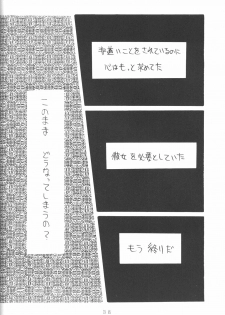 非道いことをされているのに
心はもっと求めてた
彼女を必要としていた
もう終りだ
このまま
どうなってしまうの?